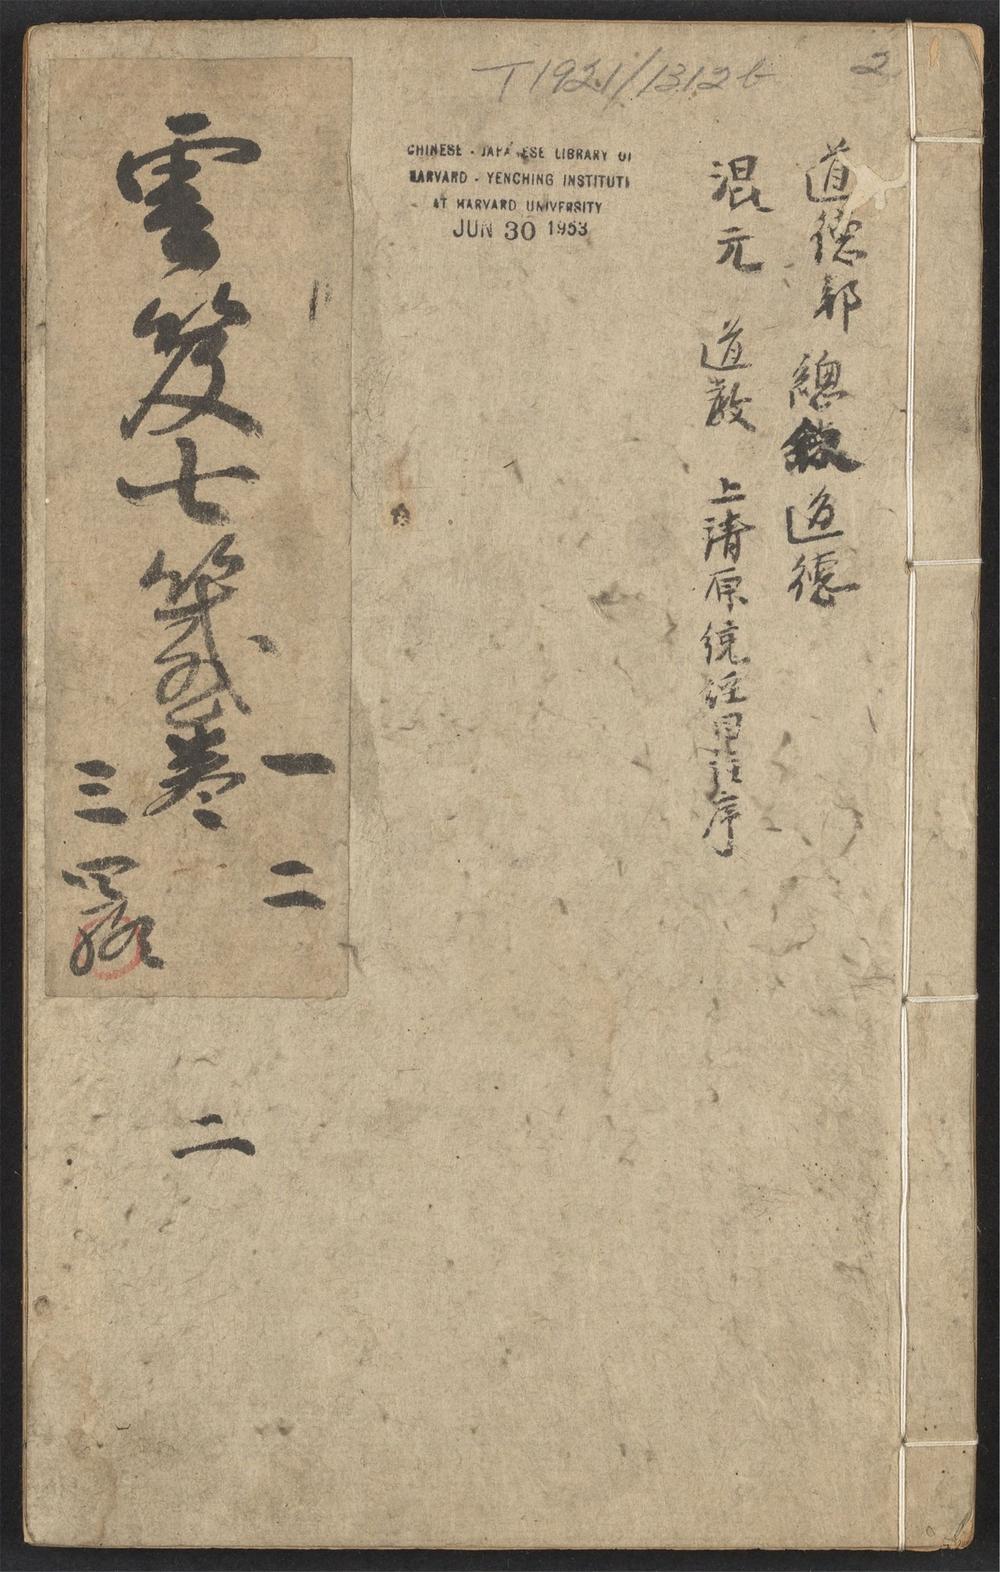 T1921/1312b
2
CHINESE - JAPANESE LIBRARY OF
HARVARD - YENCHING INSTITUTE
AT HARVARD UNIVERSITY
JUN 30 1953
道德部 總敘 道德
混元 道教 上清原統經目註序
一 二
雲笈七籤卷
三 四
二